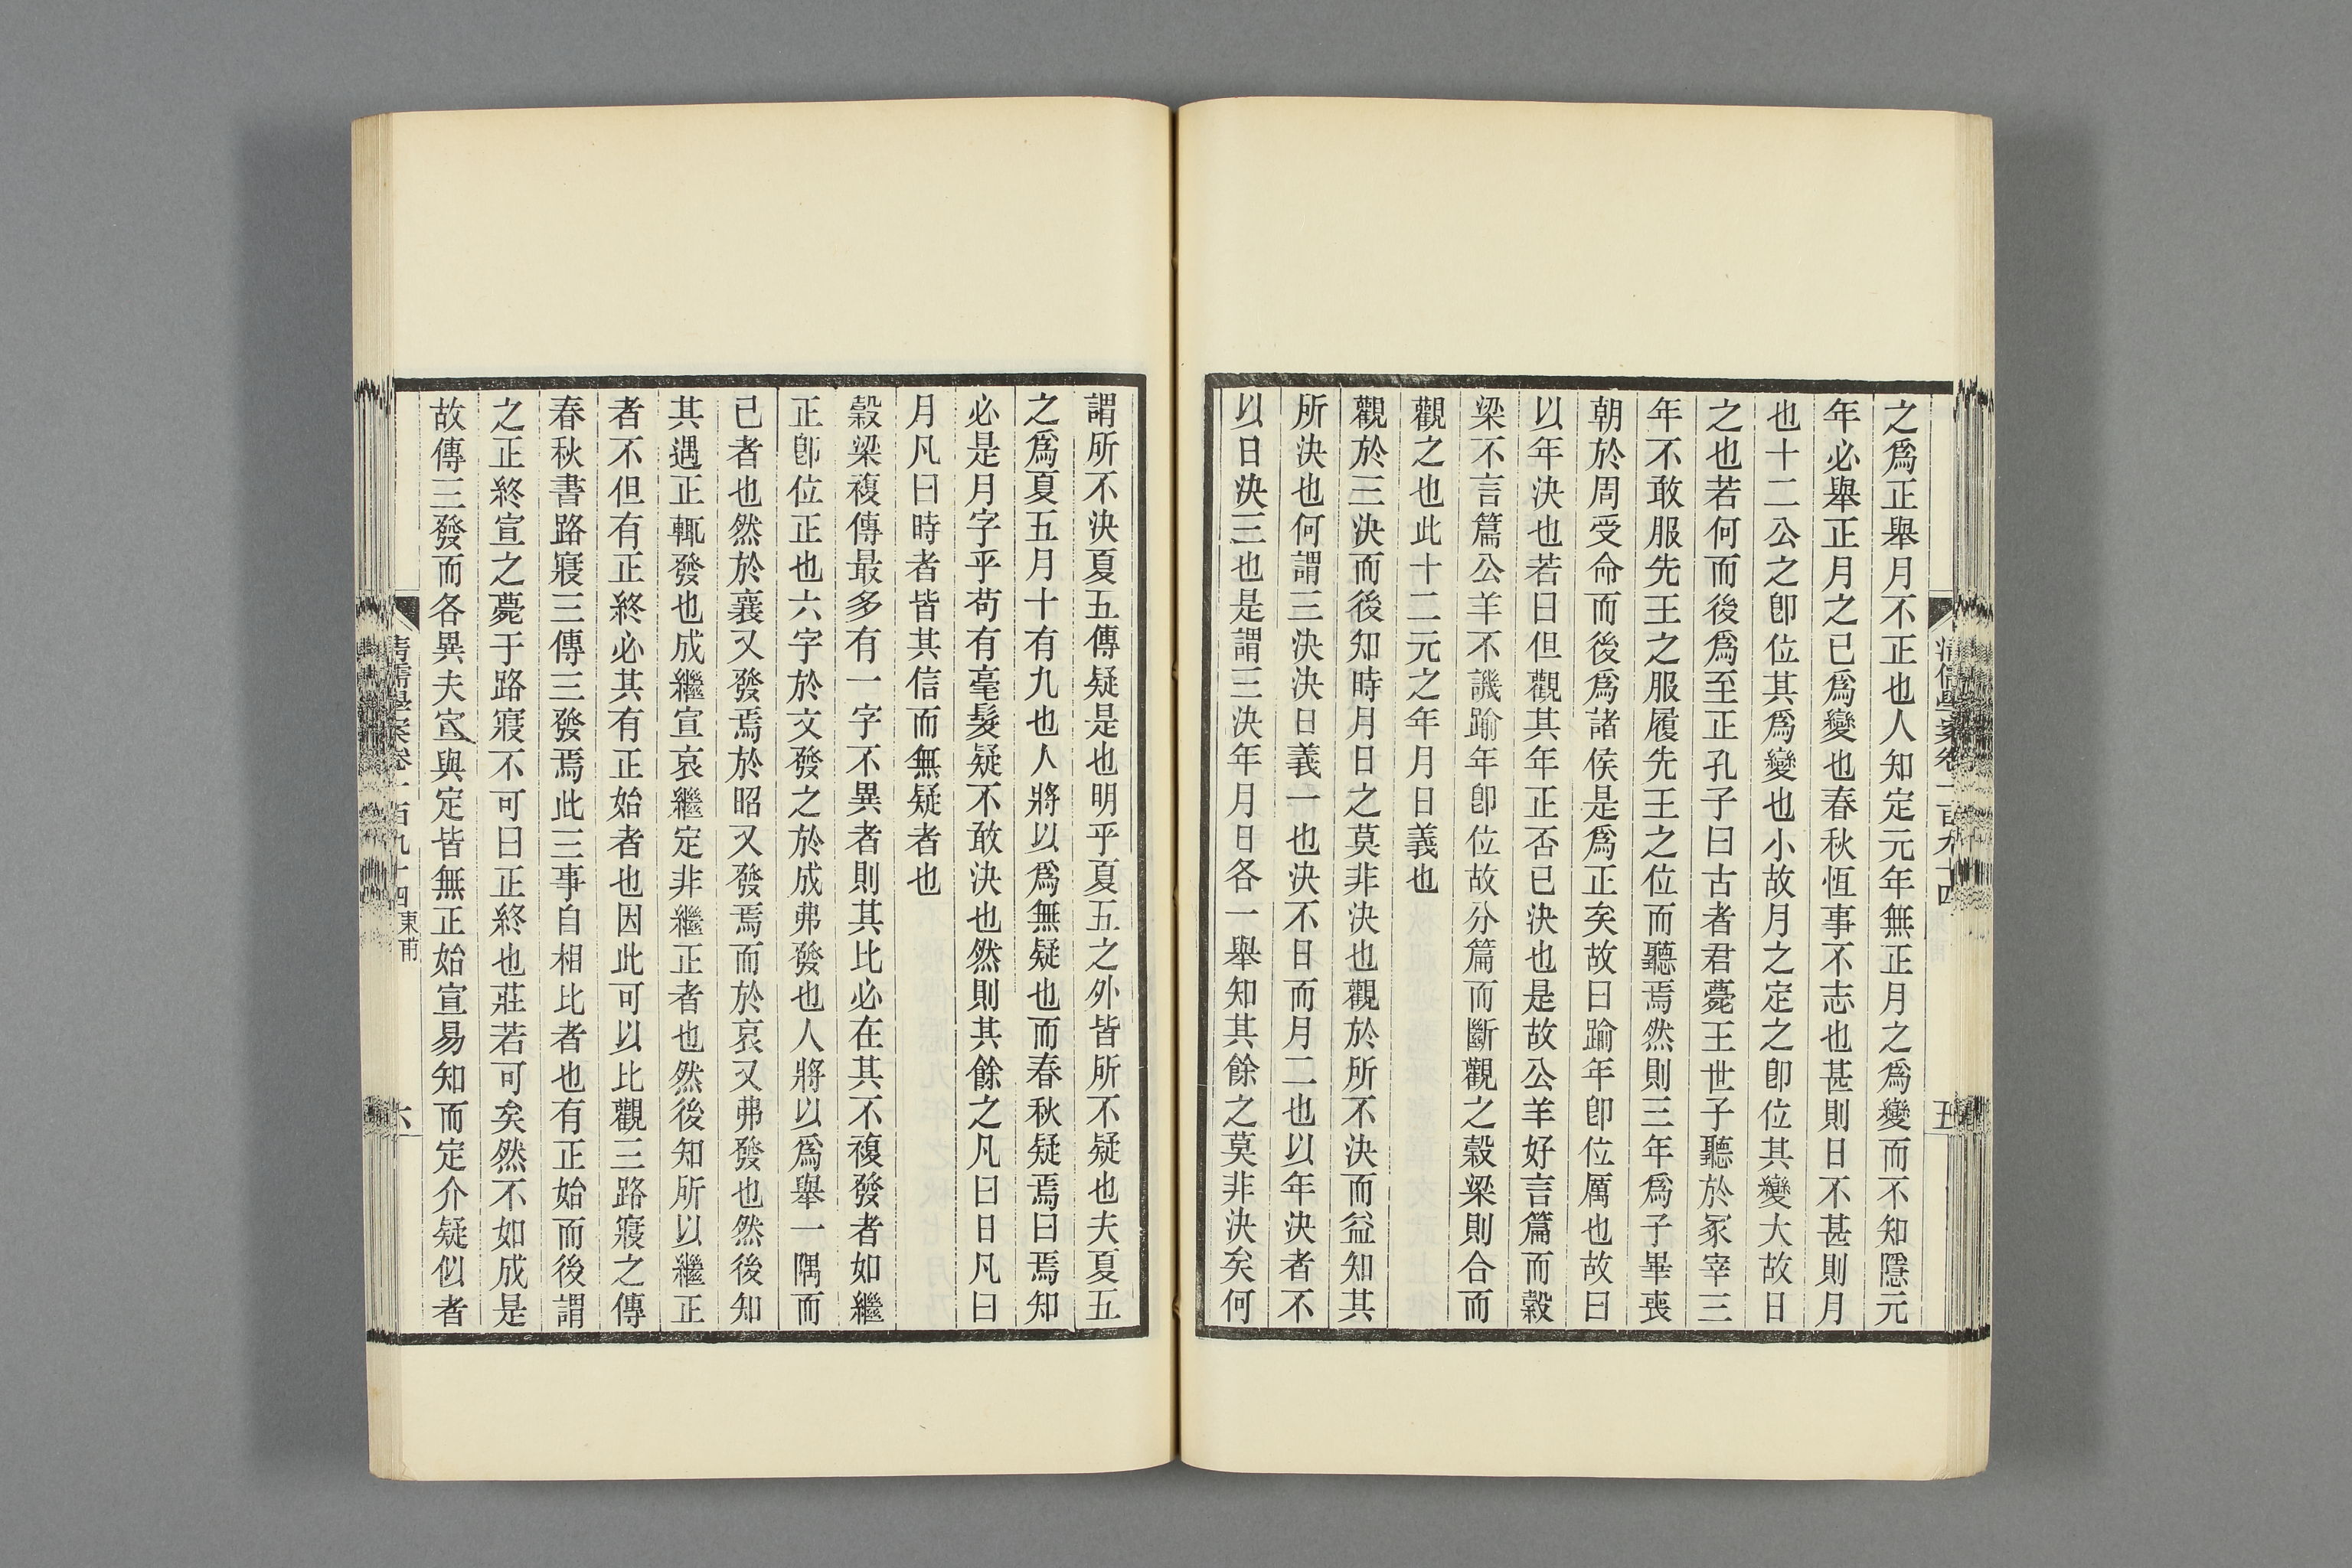 之爲正舉月不正也人知定元年無正月之爲變而不知隱元
年必舉正月之已爲變也春秋恆事不志也甚則日不甚則月
也十二公之卽位其爲變也小故月之定之卽位其變大故日
之也若何而後爲至正孔子曰古者君薨王世子聽於冢宰三
年不敢服先王之服履先王之位而聽焉然則三年爲子畢喪
朝於周受命而後爲諸侯是爲正矣故曰踰年卽位厲也故曰
以年決也若曰但觀其年正否已決也是故公羊好言篇而穀
梁不言篇公羊不譏踰年卽位故分篇而斷觀之穀梁則合而
觀之也此十二元之年月日義也
觀於三決而後知時月日之莫非決也觀於所不決而益知其
所決也何謂三決決日義一也決不日而月二也以年決者不
以日決三也是謂三決年月日各一舉知其餘之莫非決矣何
清儒學案卷一百九十四
五
謂所不決夏五傳疑是也明乎夏五之外皆所不疑也夫夏五
之爲夏五月十有九也人將以爲無疑也而春秋疑焉曰焉知
必是月字乎苟有毫髮疑不敢決也然則其餘之凡曰日凡曰
月凡曰時者皆其信而無疑者也
穀梁複傳最多有一字不異者則其比必在其不複發者如繼
正卽位正也六字於文發之於成弗發也人將以爲舉一隅而
已者也然於襄又發焉於昭又發焉而於哀又弗發也然後知
其遇正輒發也成繼宣哀繼定非繼正者也然後知所以繼正
者不但有正終必其有正始者也因此可以比觀三路寢之傳
春秋書路寢三傳三發焉此三事自相比者也有正始而後謂
之正終宣之薨于路寢不可曰正終也莊若可矣然不如成是
故傳三發而各異夫宣與定皆無正始宣易知而定介疑似者
清儒學案卷一百九十四 東甫
六